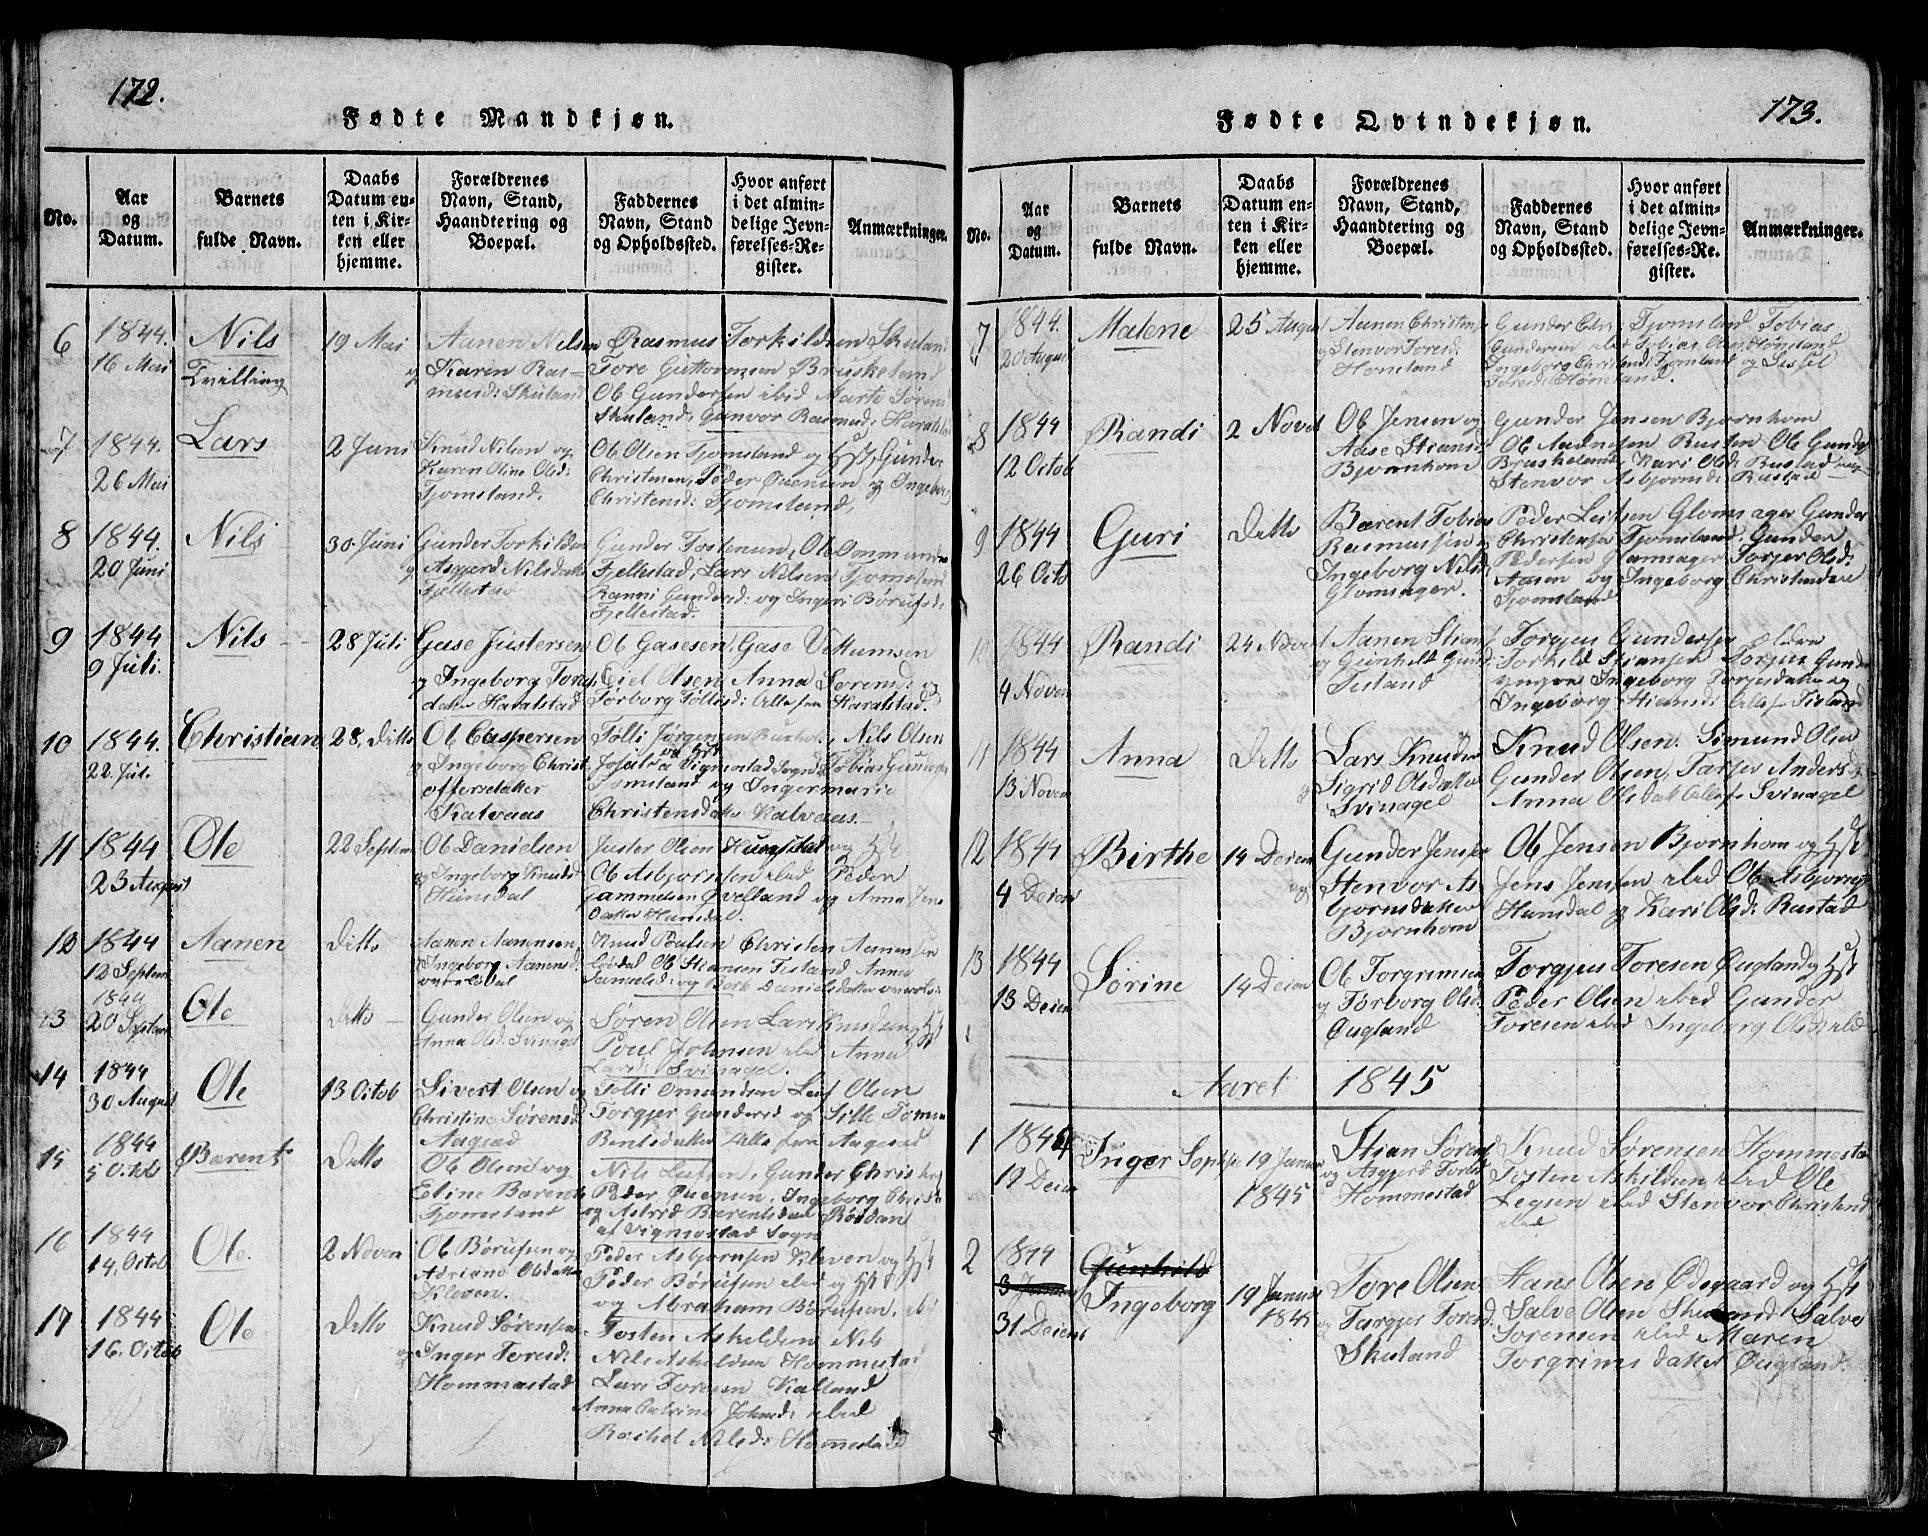 172.
Fødte Mandkjøn.
No.
Aar og Datum.
Barnets fulde Navn.
Daabs Datum enten i Kirken eller hjemme.
Forældrenes Navn, Stand, Haandtering og Boepæl.
Faddernes Navn, Stand og Opholdssted.
Hvor anført i det almindelige Jevnførelses-Register.
Anmærkninger.
6
1844.
16 Mai
Nils
Tvilling
19 Mai
Aanen Nilsen
og Karen Rasmusd: Skuland
Rasmus Torkildsen Skuland
Tore Guttormsen Bruskeland
Ole Gundersen ibid Marte Sørens
Skuland, Gunvor Rasmusd:
7
1844.
26 Mai
Lars
2 Juni
Knud Nilsen og
Karen Oline Olsd:
Tjomsland.
Ole Olsen Tjomsland og Hst, Gunder
Christensen, Peder Ouensen og Ingeborg
Christensd: Tjomsland,
8
1844
20 Juni
Nils
30. Juni
Gunder Torkildsen
og Asgjerd Nilsdatter
Fjellestad
Gunder Tostensen, Ole Ommundsen
Fjellestad, Lars Nilsen Tjomsland
Ranni Gundersd: og Ingeri Børufsd:
Fjellestad.
9
1844
9 Juli.
Nils
28 Juli
Gase Justersen
og Ingeborg Torjusdatter Haralstad
Ole Gasesen, Gase Villumsen
Eiel Olsen Anna Sorensd: og
Torborg Tollisd: Alle fra Haralstad.
10
1844.
22. Jul.
Christian
28, Ditto
Ole Caspersen
og Ingeborg Christoffersdatter
Kalvaas
Tolli Jørgensen, Nils Olsen
Vigmostad Sogn, Tobias Gundersen
Tjomsland og Ingermarie
Christensdatter Kalvaas.
11
1844
23 August
Ole
22 Septem
Ole Danielsen
og Ingeborg Knudsd
Hunsdal
Juster Olsen Hunsdal og Hst
Ole Asbjornsen ibid Peder
Gammelsen Øvelland og Anna Jensdatter Hunsdal.
12
1844
12 Septem
Aanen
Ditto
Aanen Aanensen
Ingeborg Aanensd:
Knud Poulsen Christen Aanensen
Ole Stiansen Tisland, Anna
13
1844
20 Septem
Ole
Ditto
Gunder Olsen og
Anna Olsd: Svinagel
Søren Olsen Lars Knudsen og Hst
Poul Johnsen ibid Anna
Larsd: Svinagel.
14
1844
30 August
Ole
13 Octob
Sivert Olsen og
Christine Sørensd
Aagesad
Tolli Omundsen Leif Olsen
Torgjer Gundersd og Sille Tomine
Bentsdatter Alle fra Aagesad
15
1844
5 Octob
Bærent
Ditto
Ole Olsen og
Eline Bærents
Tjomsland
Nils Leifsen, Gunder Christens
Peder Ouensen, Ingeborg Christens
og Astrid Bærentsdat Røsdan
af Vigmostad Sogn
16
1844
14, Octob
Ole.
2 Novem
Ole Børufsen og
Adriane Olsdatter
Kleven.
Peder Asbjornsen Kleven og Hst
Peder Børufsen ibid og Hst
og Abraham Børufsen, ibid
17
1844
16. Octob
Ole
Ditto
Knud Sørensen
og Inger Toresd:
Hommestad
Tosten Askildsen Nils
Nils Askildsen Hommestad
Lars Toresen Kalland
Anna Catrine Johnsd: ibid
Rachel Nilsd: Hommestad
173.
Fødte Qvindekjøn.
No.
Aar og Datum.
Barnets fulde Navn.
Daabs Datum enten i Kirken eller hjemme.
Forældrenes Navn, Stand, Haandtering og Boepæl.
Faddernes Navn, Stand og Opholdssted.
Hvor anført i det almindelige Jevnførelses-Register.
Anmærkninger.
7
1844.
20 August
Malene
25 August
Aanen Christens
og Stenvor Toresd:
Honsland
Gunder Chr Tjomsland Tobias
Gundersen ibid Tobias Olsen Hønsland
Ingeborg Christensd: Tjomsland og Sissel
Toresd: Hønsland.
8
1844
12 Octob
Randi
2 Novem
Ole Jensen og
Aase Stiansd
Bjornhom
Gunder Jensen Bjornhom
Ole Aadnesen Rustad Ole Gunders
Bruskeland, Kari Olsd: Rustad og
Stenvor Asbjornsd: Rustad
9
1844
26 Octo
Guri
Ditto
Bærent Tobias
Rasmussen og
Ingeborg Nilsd:
Glomsager.
Peder Leifsen Glomsager Gunder
Christensen Tjomsland, Gunder
Pedersen Glomsager Torjer Olsd:
Aasen og Ingeborg Christensdatter
Tjomsland
10
1844
4 Novem
Randi
24 Novem
Aanen Stians
og Gunhild Gunds:
Tisland
Torgjus Gundersen ældre
Torkild Stiansen Torjus Gunder
yngre Ingeborg Torjusdatter og
Ingeborg Stiansd: Alle fr Tisland
11
1844
13 Novem
Anna
Ditto
Lars Knudsen
og Sigrid Olsdatter
Svinagel
Knud Olsen. Simund Olsen
Gunder Olsen, Tarjer Andersd
Anna Olsdatt Alle fr Svinagel
12
1844
4 Decem
Birthe
14 Decem
Gunder Jensen
og Stenvor Asbjornsdatter
Bjornhom
Ole Jensen Bjornhom og Hst
Jens Jensen ibid Ole Asbjorns
Hunsdal og Kari Olsd: Rustad
13
1844
13 Decem
Sørine
14 Decem
Ole Torgrimsen
og Torborg Olsd:
Øugland
Torgjus Toresen Øugland og Hst
Peder Olsen ibid Gunder
Toresen ibid Ingeborg Olsd: ibid
Aaret 1845
1
1844
19 Decem
Inger Sophie
19 Januar
1845
Stian Sørens
og Asgjerd Torkils
Hommestad
Knud Sørensen Hommestad
Tosten Askildsen ibid Ole
Legsen ibid Stenvor Christensd
ibid
2
1844
3 Januar
31 Decem
Gunhild
Ingeborg
19 Januar
1845
Tore Olsen
og Targjer Toresd.
Skuland
Hans Olsen Ødegaard og Hst
Salve Olsen Skuland Salve
Sorensen ibid Maren
Torgrims datter Øugland.